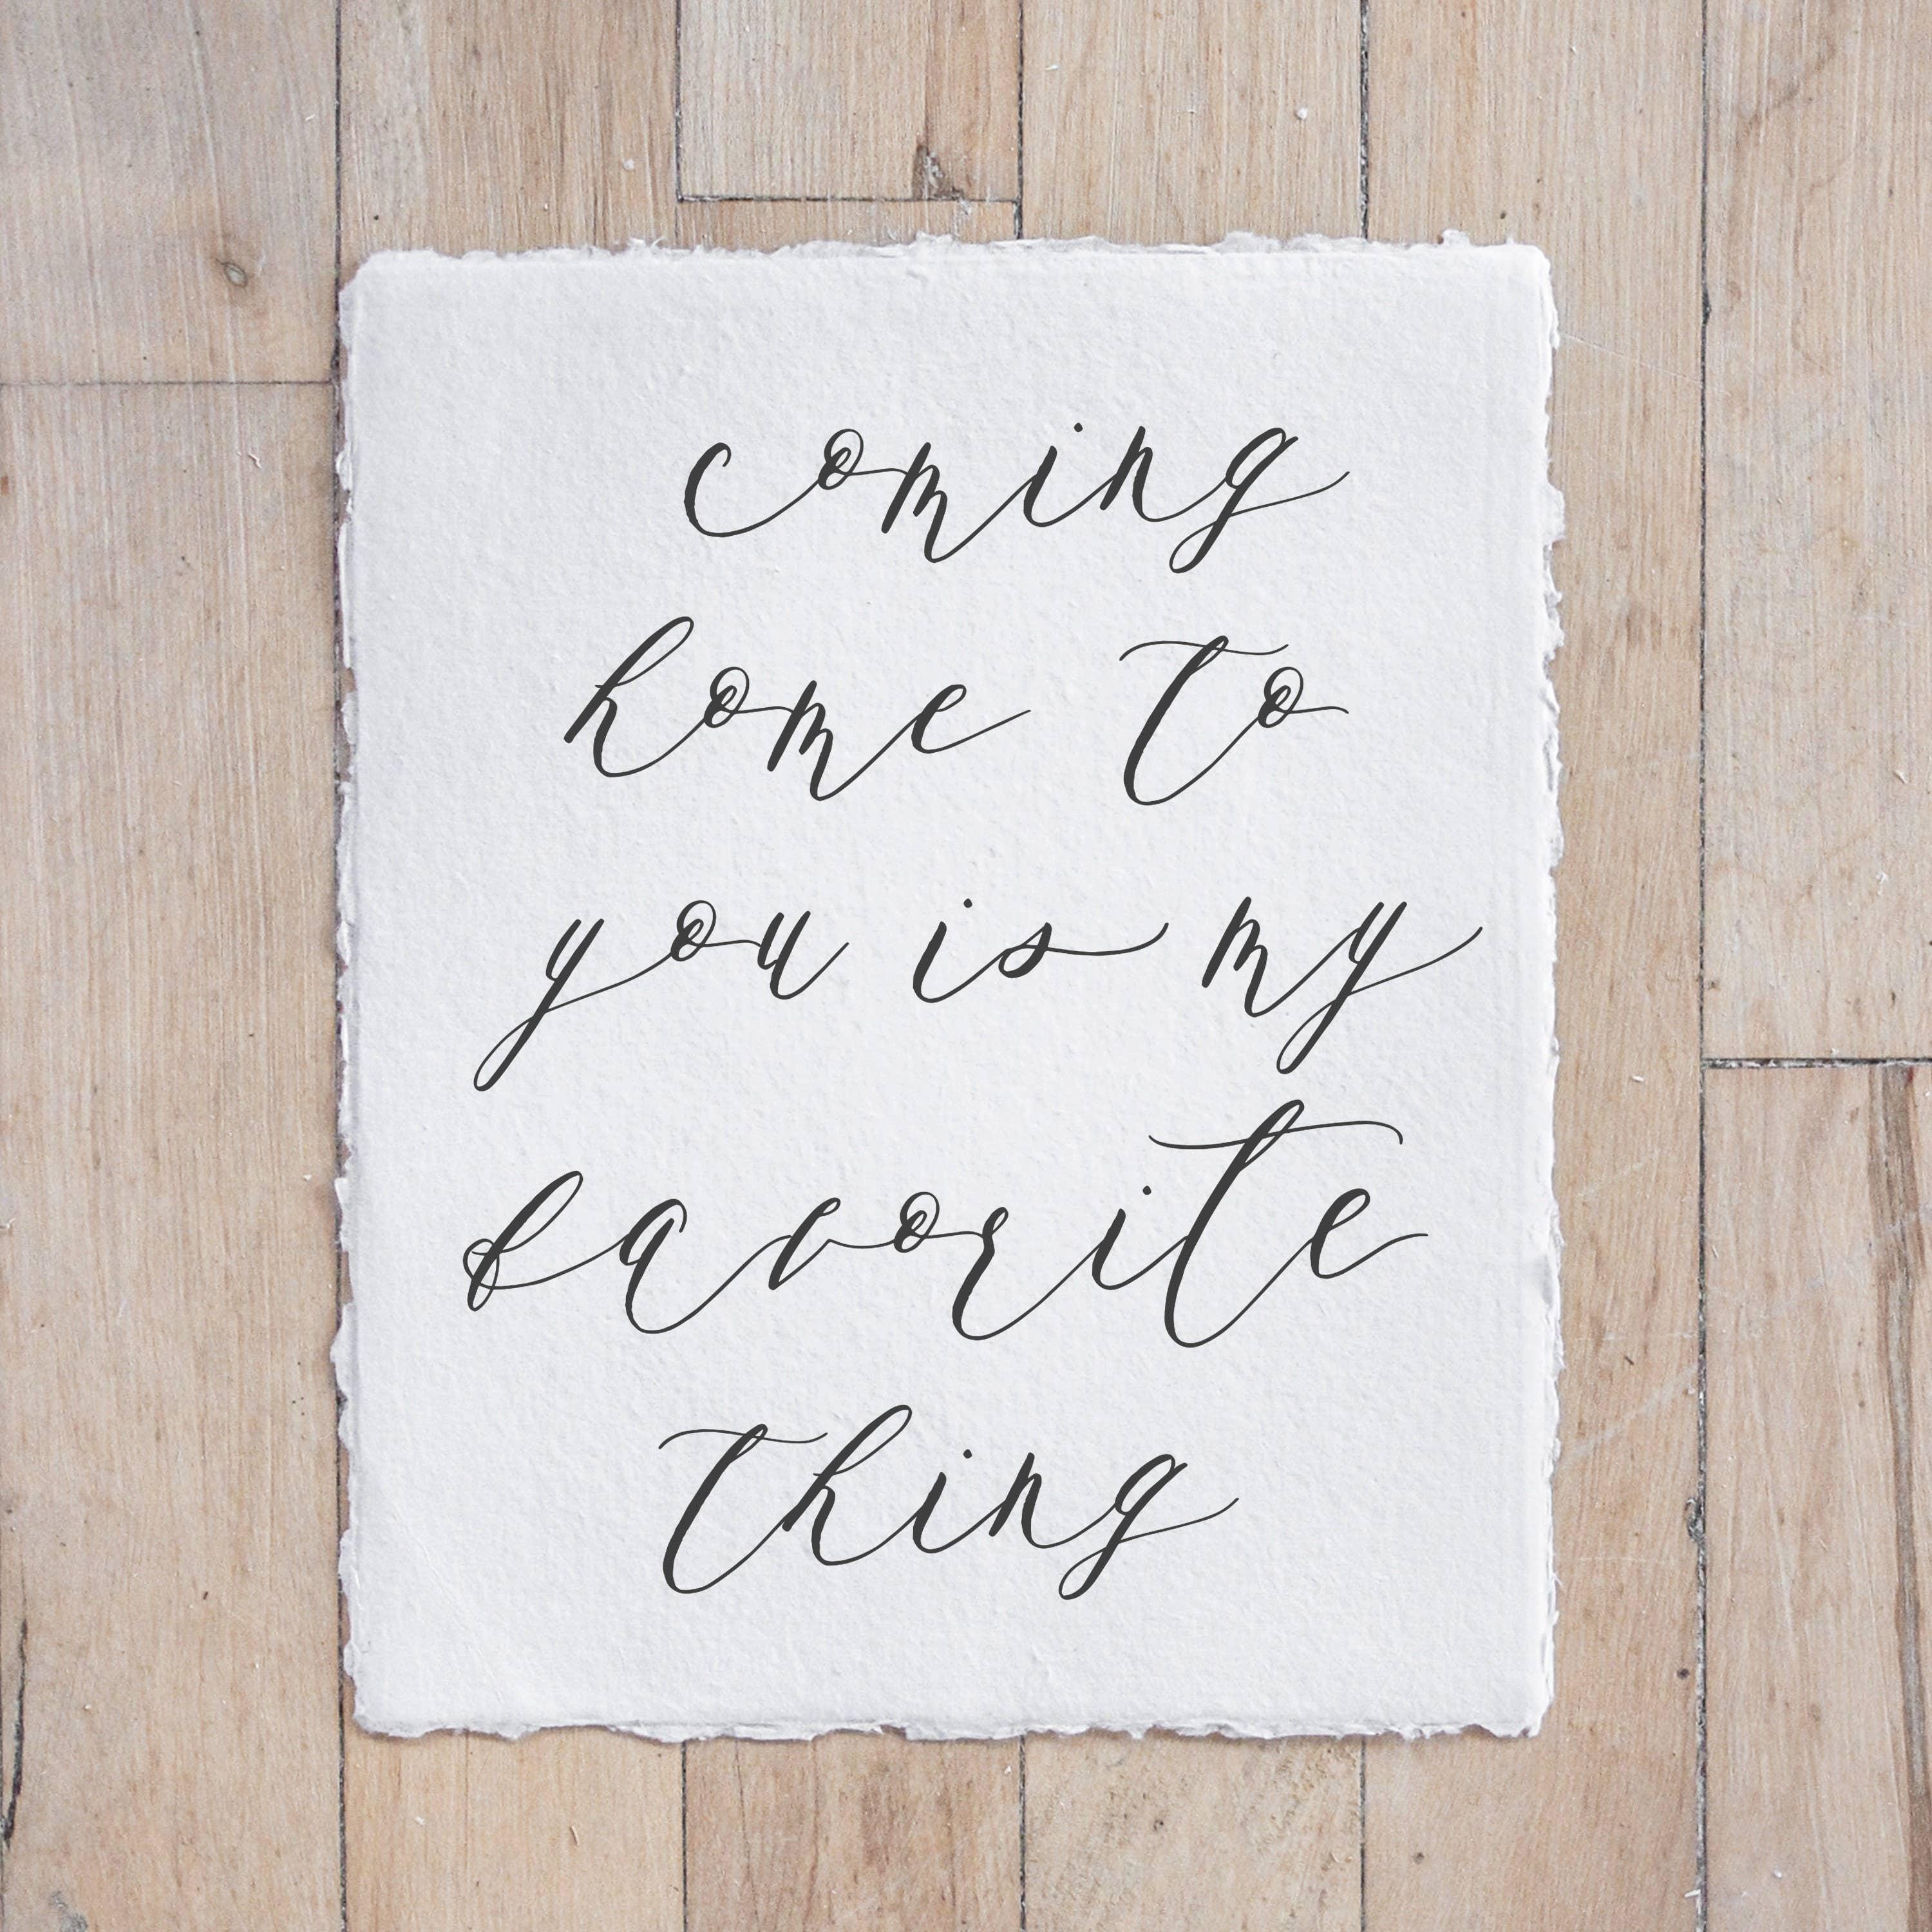 coming
home to
you is my
favorite
thing